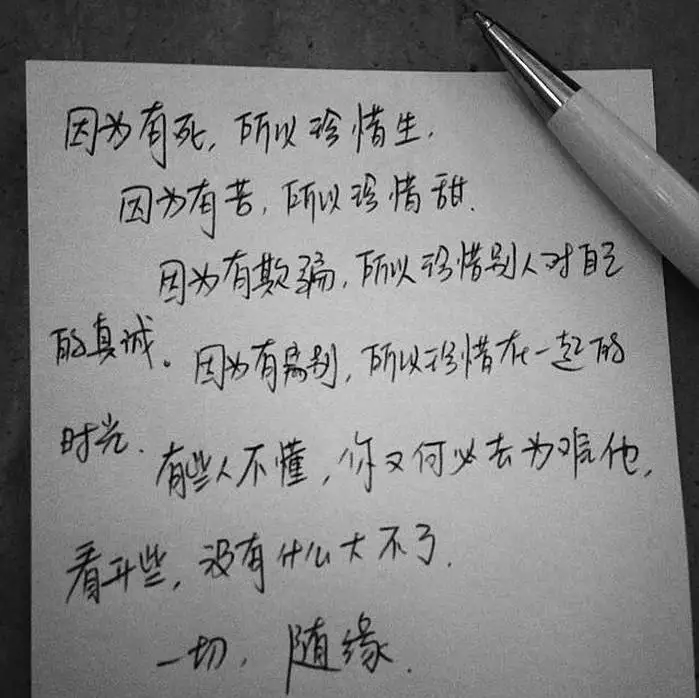 因为有死，所以珍惜生.
因为有苦，所以珍惜甜.
因为有欺骗，所以珍惜别人对自己
的真诚。因为有离别，所以珍惜在一起的
时光.
有些人不懂，你又何必去为难他，
看开些，没有什么大不了.
一切，随缘.